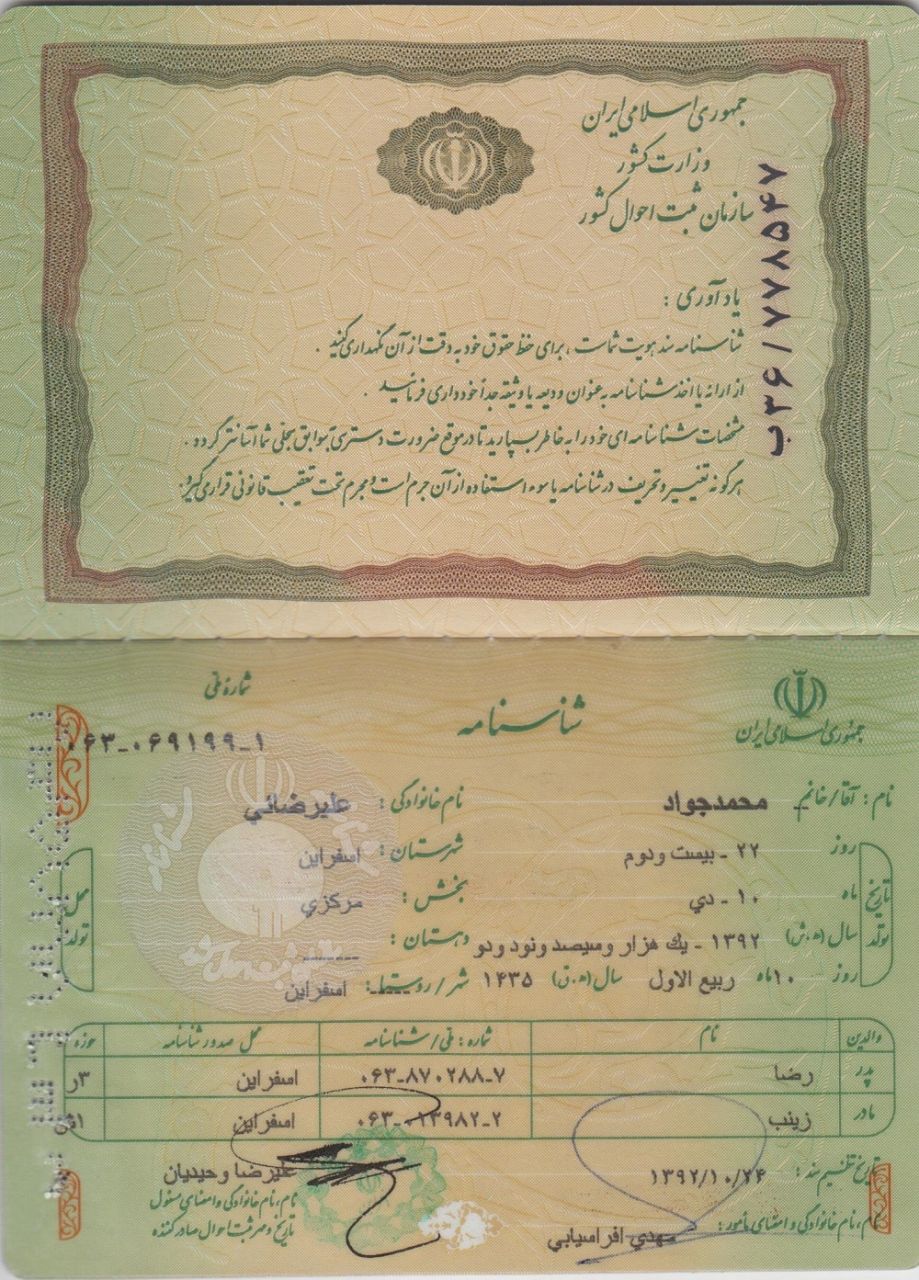 جمهوری اسلامی ایران
وزارت کشور
سازمان ثبت احوال کشور
ب۳۶/۷۷۸۵۴۷
یادآوری :
شناسنامه سند هویت شماست ، برای حفظ حقوق خود به دقت از آن نگهداری کنید .
از ارائه یا اخذ شناسنامه به عنوان ودیعه یا وثیقه جداً خودداری فرمائید .
مشخصات شناسنامه ای خود را به خاطر بسپارید تا در موقع ضرورت دسترسی به سوابق سجلی شما آسانتر گردد .
هر گونه تغییر و تحریف در شناسنامه یا سوء استفاده از آن جرم است و مجرم تحت تعقیب قانونی قرار می گیرد.
جمهوری اسلامی ایران
شناسنامه
شماره ملی
۰۶۳-۰۶۹۱۹۹-۱
نام : آقا/خانم محمدجواد نام خانوادگی : علیرضائي
تاریخ تولد
روز ۲۲ - بیست ودوم
ماه ۱۰ - دي
سال (ه.ش) ۱۳۹۲ - یك هزار وسیصد ونود ودو
روز ۱۰ ماه ربیع الاول سال (ه.ق) ۱۴۳۵
محل تولد
شهرستان : اسفراین
بخش : مرکزي
دهستان : -------
شهر/روستا : اسفراین
والدین نام شماره : ملی/شناسنامه محل صدور شناسنامه حوزه
پدر رضا ۰۶۳-۸۷۰۲۸۸-۷ اسفراین ۳ر
مادر زینب ۰۶۳-۰۱۳۹۸۲-۲ اسفراین
تاریخ تنظیم سند : ۱۳۹۲/۱۰/۲۴
نام، نام خانوادگی و امضای مأمور : مهدي افراسیابي
علیرضا وحیدیان
نام، نام خانوادگی و امضای مسئول
تاریخ و مهر ثبت احوال صادر کننده